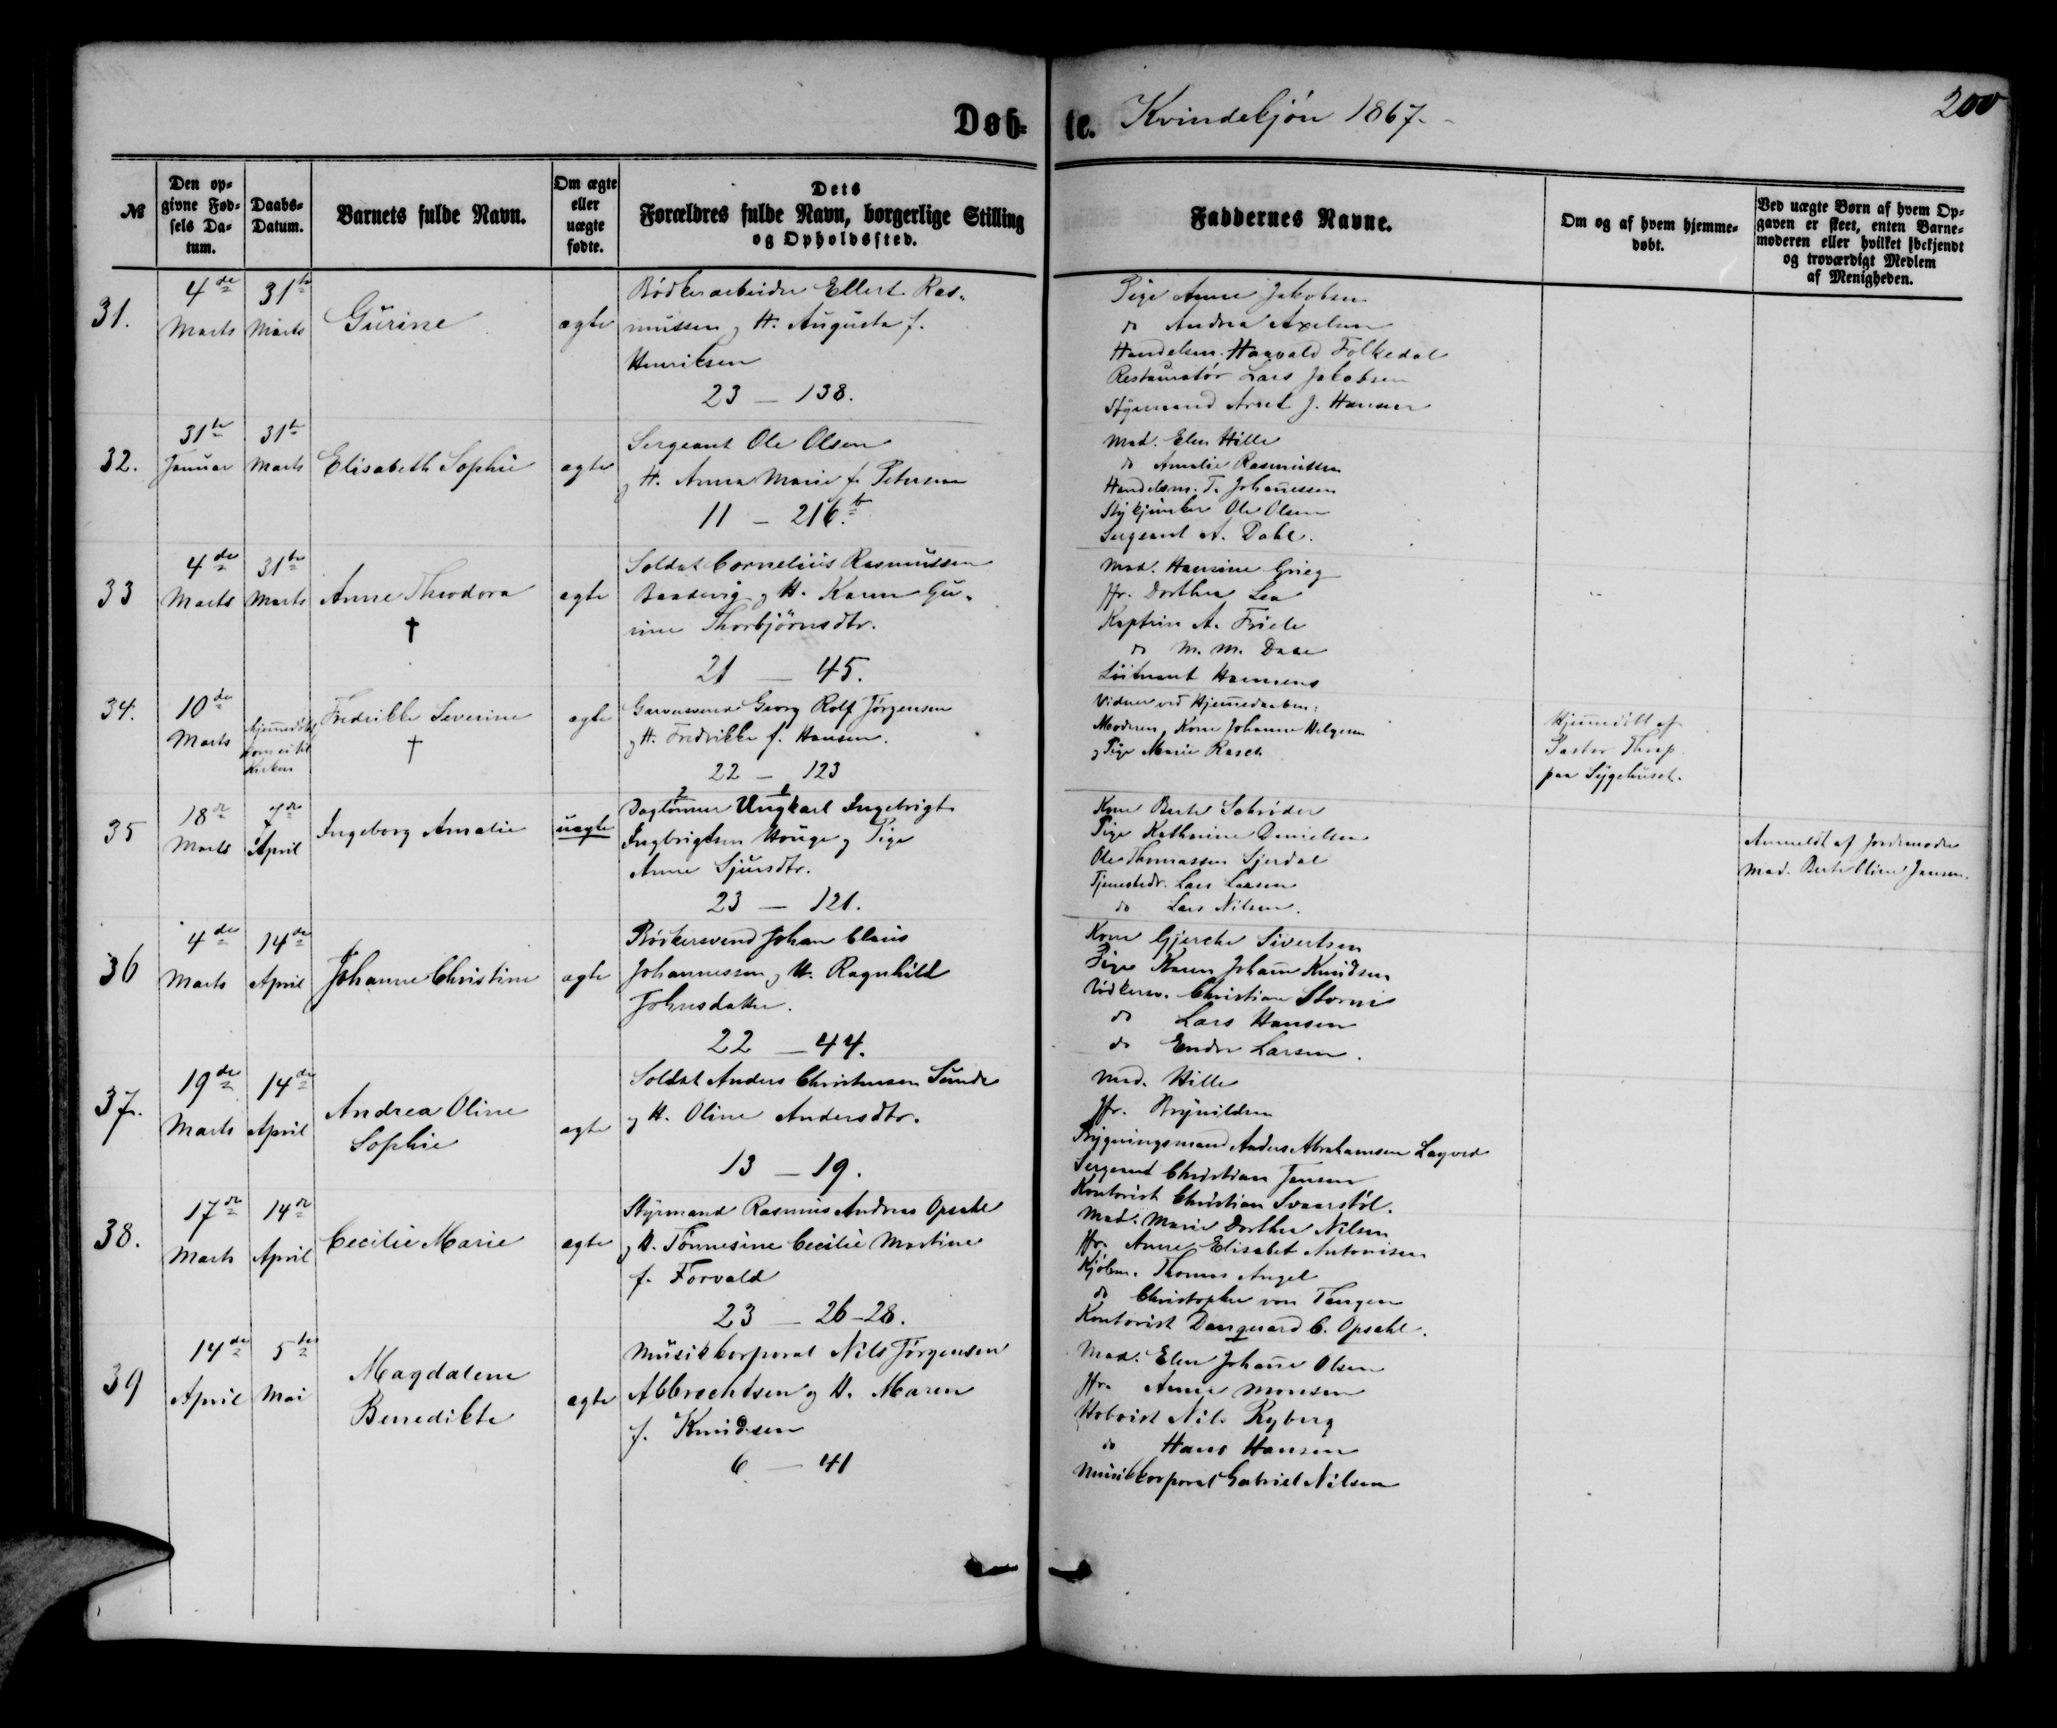 Døb-
te.
Kvindekjøn 1867.
200
№
Den op-
givne Fød-
sels Da-
tum.
Daabs-
Datum.
Barnets fulde Navn.
Om ægte
eller
uægte
fødte.
Dets
Forældres fulde Navn, borgerlige Stilling
og Opholdssted.
Faddernes Navne.
Om og af hvem hjemme-
døbt.
Ved uægte Børn af hvem Op-
gaven er skeet, enten Barne-
moderen eller hvilket bekjendt
og troværdigt Medlem
af Menigheden.
31.
4de
Marts
31te
Marts
Gurine
ægte
Bødkerarbeider Ellert Ras-
mussen og H. Augusta f.
Henriksen
23 - 138.
Pige Anne Jakobsen
do Andrea Axelsen
Handelsm. Haavald Folkedal
Restauratør Lars Jakobsen
Styrmand Arnt J. Hansen
32.
31te
Januar
31te
Marts
Elisabeth Sophie
ægte
Sergeant Ole Olsen
og H. Anna Marie f. Petersen
11 - 216.b
Mad. Elen Hille
do Amalie Rasmussen
Handelsm. T. Johannessen
Stykjunker Ole Olsen
Sergeant A. Dahl.
33
4de
Marts
31te
Marts
Anne Theodora
†
ægte
Soldat Cornelius Rasmussen
Baadevig og H. Karen Gu-
rine Thorbjörnsdtr.
21 - 45.
Mad. Hansine Grieg
Jfr. Dorthea Lea
Kaptein A. Friele
do M. M. Daae
Lieutnant Hammens
34.
10de
Marts
hjemmedøbt
kom ei til
Kirken
Fredrikke Severine
†
ægte
Garversvend Georg Rolf Jørgensen
og H. Fredrikke f. Hansen.
22 - 123
Vidner ved Hjemmedaaben:
Moderen, Kone Johanne Helgesen
og Pige Marie Rasch
Hjemmedøbt af
Pastor Thesp
paa Sygehuset.
35
18de
Marts
7de
April
Ingeborg Amalie
uægte
2 1
Daglønner Ungkarl Ingebrigt
Ingebrigtsen Houge og Pige
Anne Sjursdtr.
23 - 121.
Kone Berte Schrøder
Pige Kathrine Danielsen
Ole Thomassen Sjerdal
Tjenestedr. Lars Larsen
do Lars Nilsen.
Anmeldt af Jordemoder
Mad. Berte Oline Jansen.
36
4de
Marts
14de
April
Johanne Christine
ægte
Bødkersvend Johan Claus
Johannessen og H. Ragnhild
Johnsdatter.
22 - 44.
Kone Gjerche Sivertsen
Pige Karen Johanne Knudsen
Bødkersv. Christian Storm
do Lars Hansen
do Endre Larsen.
37.
19de
Marts
14de
April
Andrea Oline
Sophie
ægte
Soldat Anders Christensen Sunde
og H. Oline Andersdtr.
13 - 19.
Mad. Hille
Jfr. Brynildsen
Bygningsmand Anders Abrahamsen Lagved
Sergeant Christian Jensen
Kontorist Christian Svaarstøl.
38.
17de
Marts
14de
April
Cecilie Marie
ægte
Styrmand Rasmus Andreas Opsahl
og H. Tønnesine Cecilie Martine
f. Torvald
23 - 26-28.
Mad. Marie Dorthea Nilsen
Jfr. Anne Elisabet Antonisen
Kjøbm. Thomas Angel
do Christopher von Tangen
Kontorist Danquard C. Opsahl.
39
14de
April
5te
Mai
Magdalene
Benedikte
ægte
Musikkorporal Nils Jørgensen
Albrechtsen og H. Maren
f. Knudsen
6 - 41
Mad. Elen Johanne Olsen
Jfr. Anne Monsen
Hoboist Nils Ryberg
do Hans Hansen
Musikkorporal Gabriel Nilsen